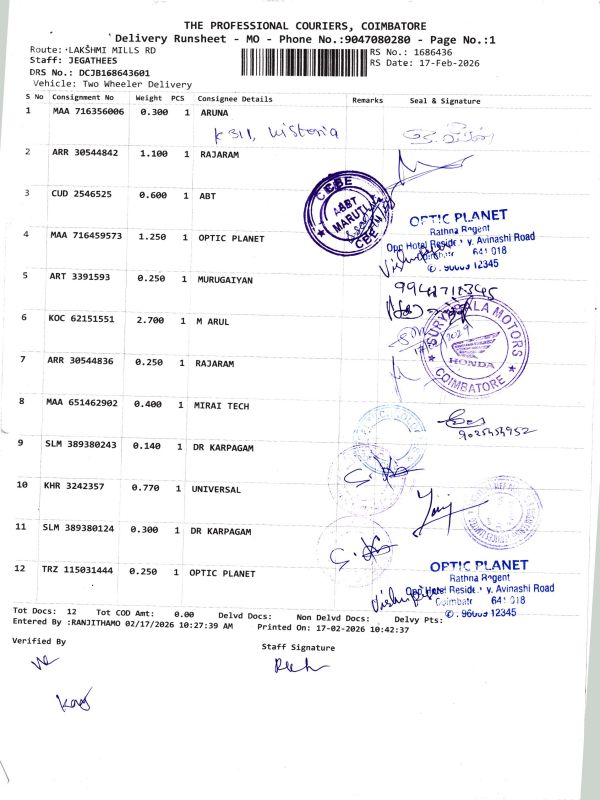 THE PROFESSIONAL COURIERS, COIMBATORE
Delivery Runsheet - MO - Phone No.:9047080280 - Page No.:1
Route: LAKSHMI MILLS RD
RS No.: 1686436
Staff: JEGATHEES
RS Date: 17-Feb-2026
DRS No.: DCJB168643601
Vehicle: Two Wheeler Delivery
S No Consignment No Weight PCS Consignee Details Remarks Seal & Signature
1 MAA 716356006 0.300 1 ARUNA
K311, Wistoria
2 ARR 30544842 1.100 1 RAJARAM
3 CUD 2546525 0.600 1 ABT
CEBE
ABBT
MARUTI
4 MAA 716459573 1.250 1 OPTIC PLANET
OPTIC PLANET
Rathna Regent
Opp Hotel Residency, Avinashi Road
641 018
5 ART 3391593 0.250 1 MURUGAIYAN
6 KOC 62151551 2.700 1 M ARUL
MOTORS
HONDA
COIMBATORE
7 ARR 30544836 0.250 1 RAJARAM
8 MAA 651462902 0.400 1 MIRAI TECH
9 SLM 389380243 0.140 1 DR KARPAGAM
10 KHR 3242357 0.770 1 UNIVERSAL
11 SLM 389380124 0.300 1 DR KARPAGAM
12 TRZ 115031444 0.250 1 OPTIC PLANET
OPTIC PLANET
Rathna Regent
Opp Hotel Residency, Avinashi Road
Coimbatore 641 018
Tot Docs: 12 Tot COD Amt: 0.00 Delvd Docs: Non Delvd Docs: Delvy Pts:
Entered By :RANJITHAMO 02/17/2026 10:27:39 AM Printed On: 17-02-2026 10:42:37
Verified By
Staff Signature